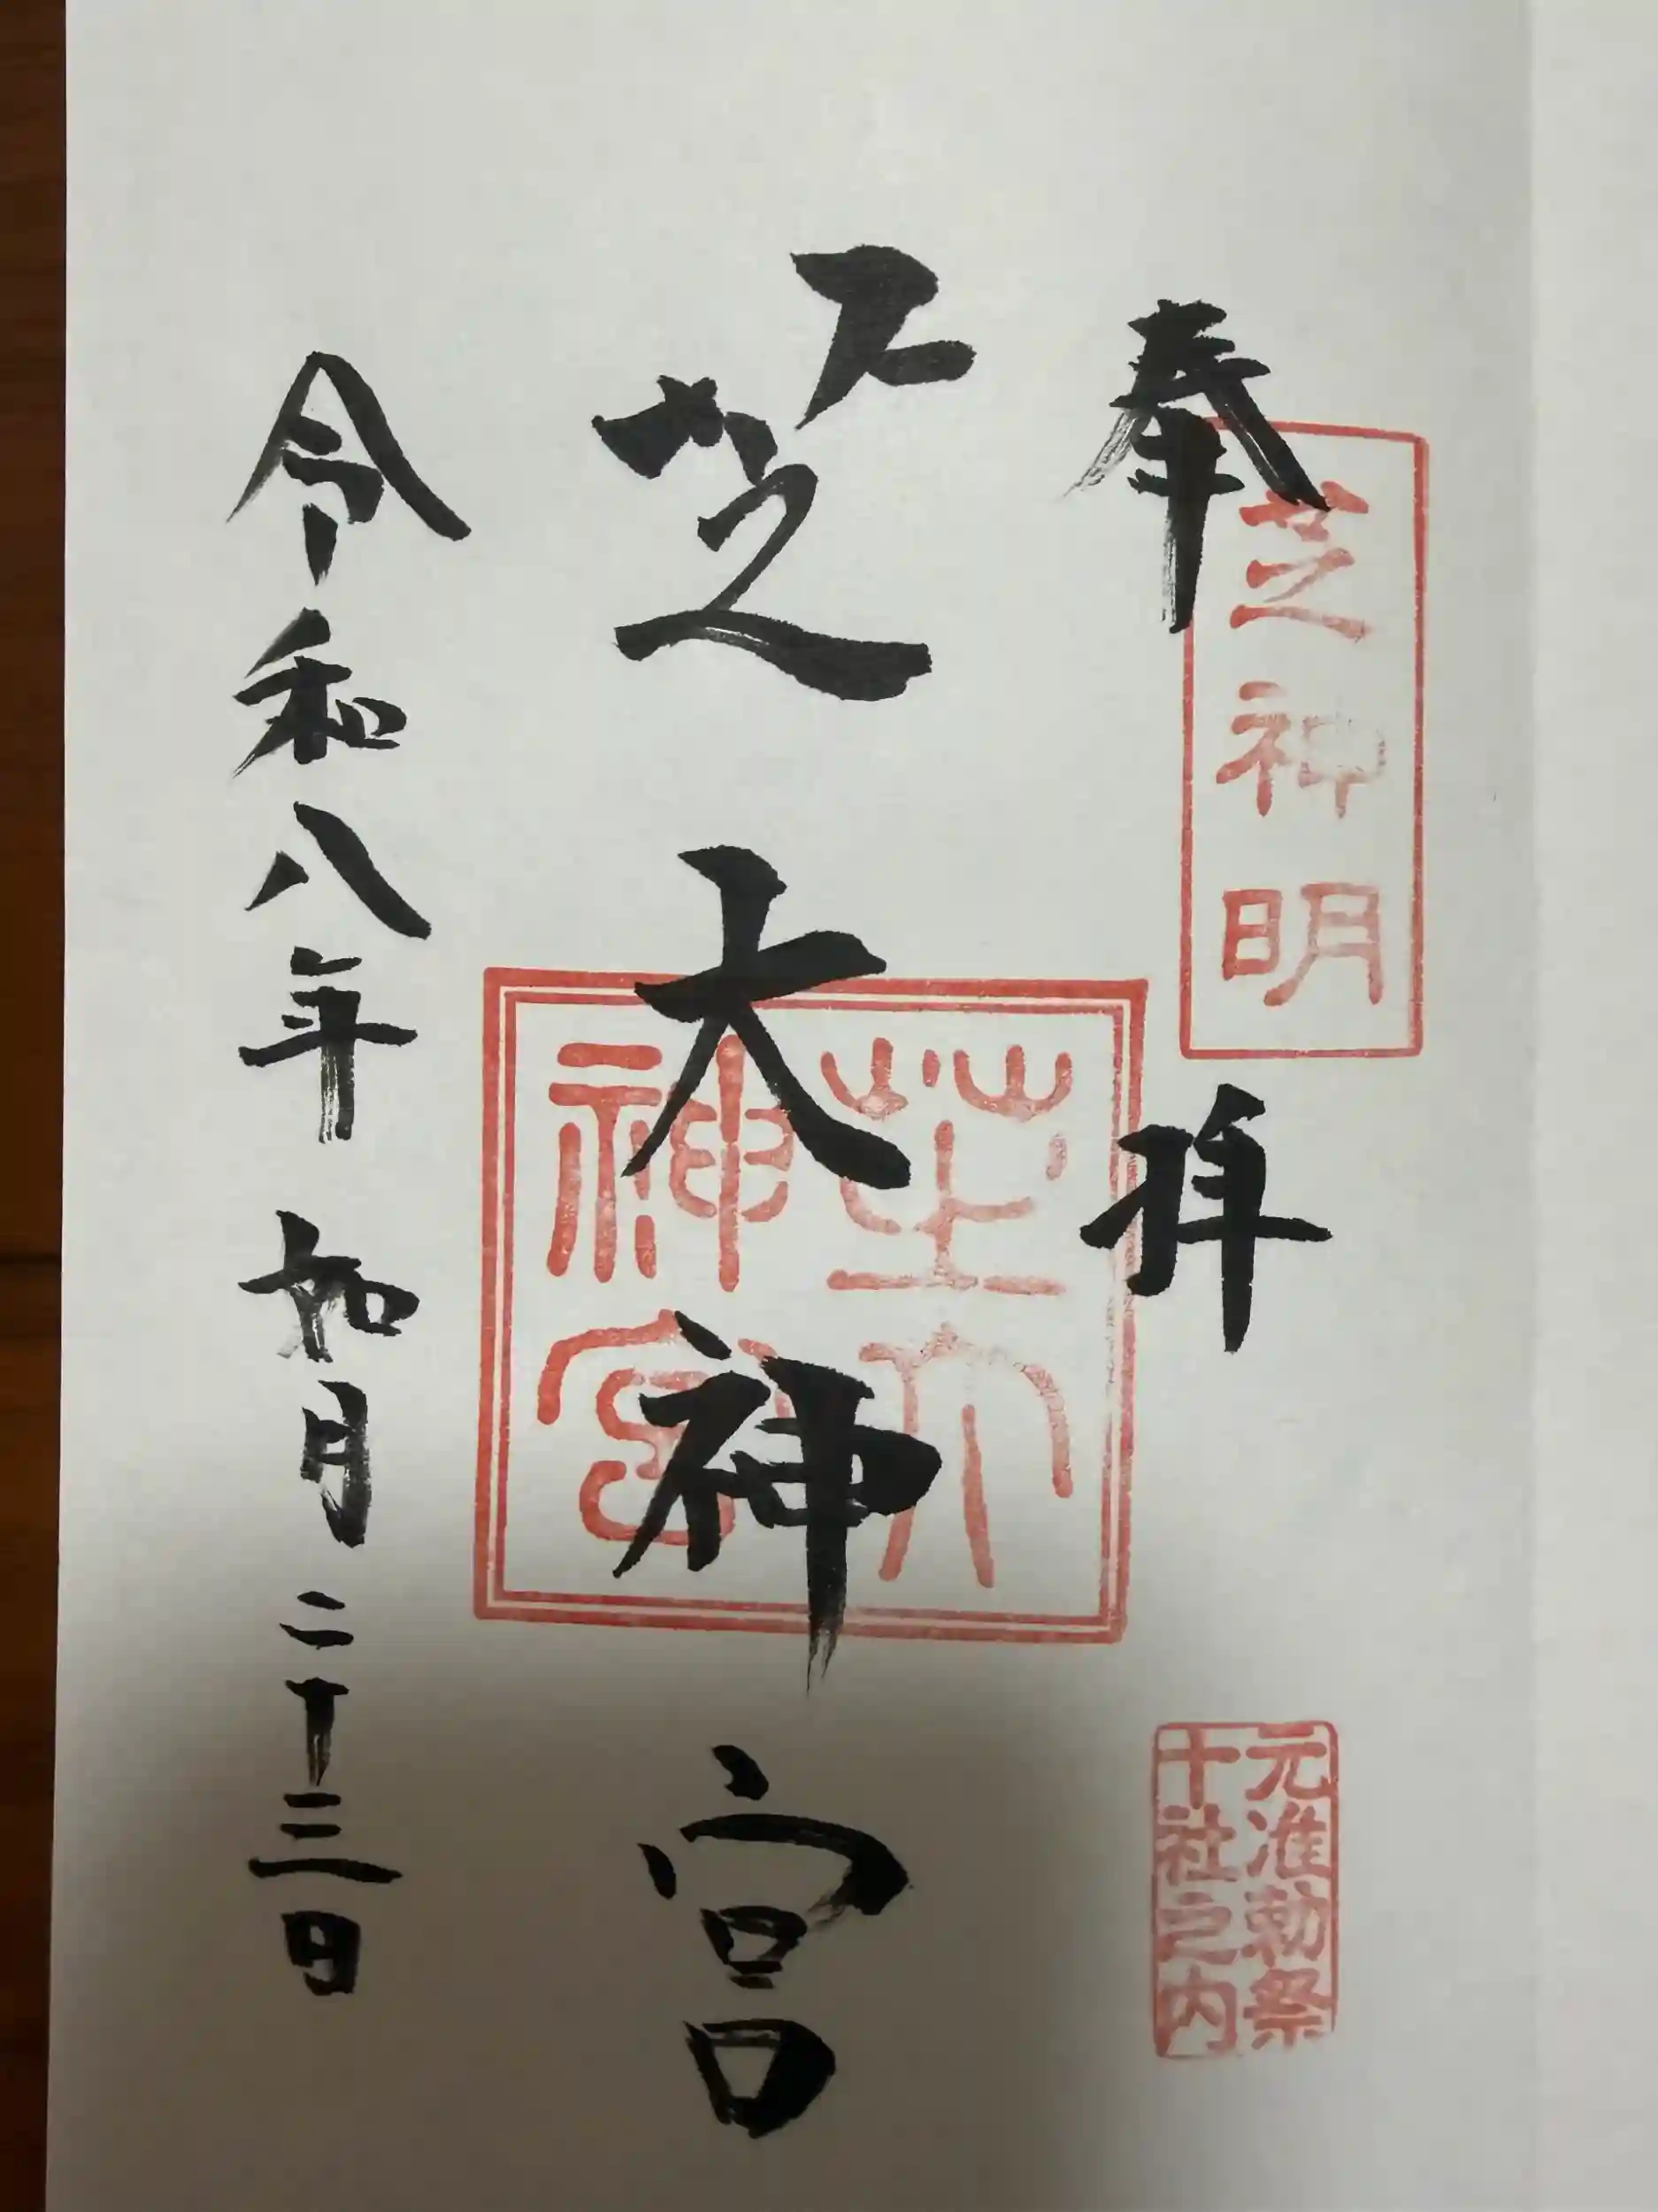 奉拝
芝神明
元准勅祭
十社之内
芝大神宮
芝大
神宮
令和八年如月二十三日